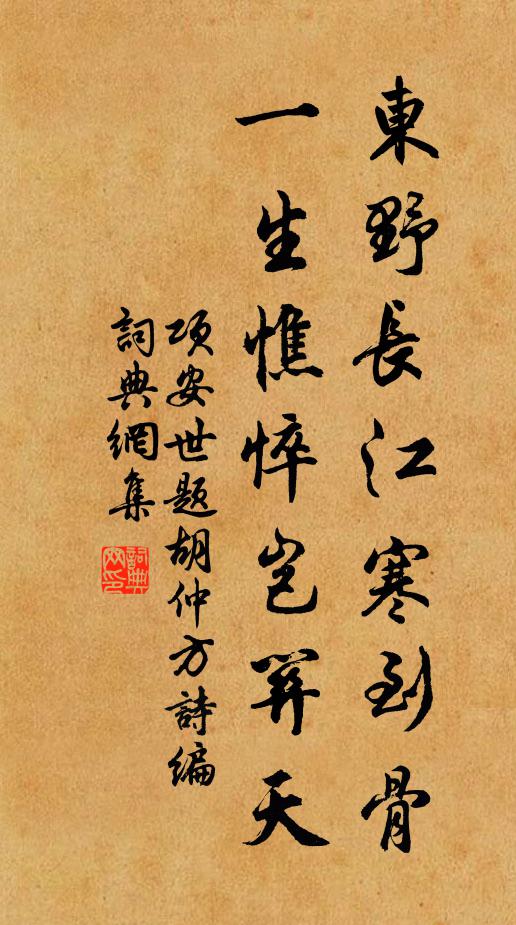 東野長江寒到骨
一生憔悴豈關天
项安世题胡仲方詩编
詞典網集
詞典網印